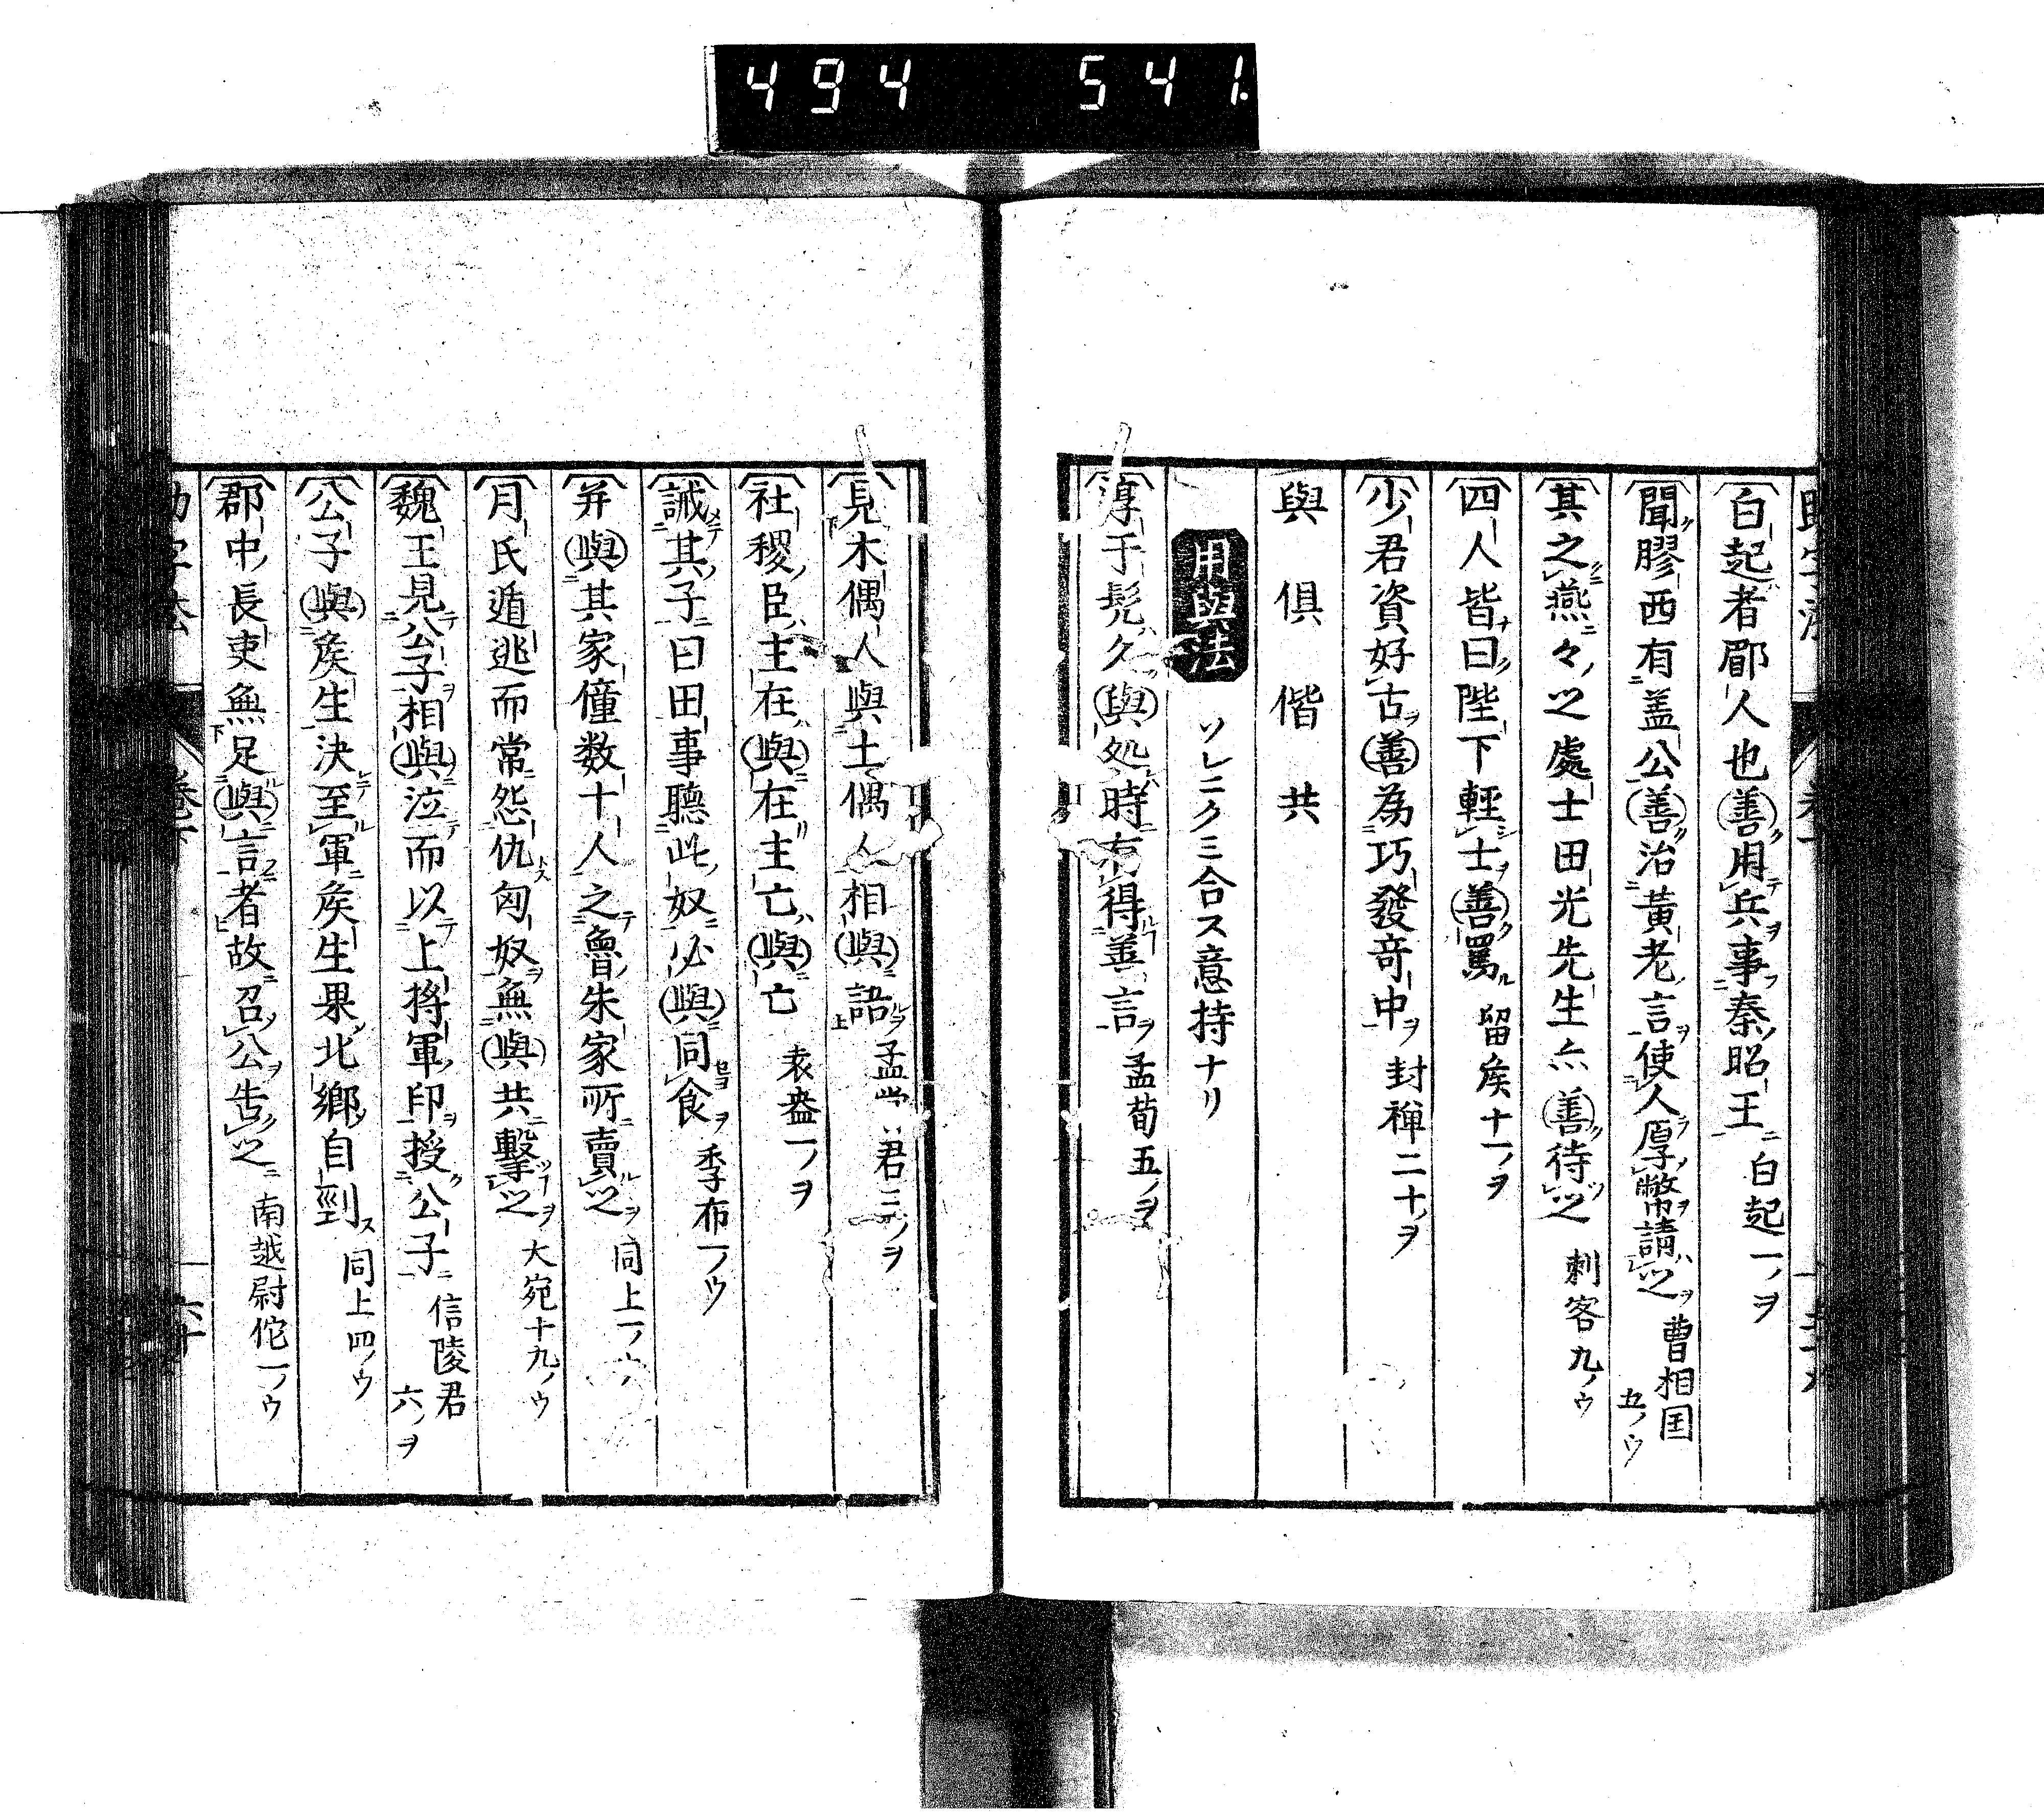 494 541
白起者郿人也善用兵事秦昭王 白起一ノヲ
聞膠西有盖公善治黃老言使人厚幣請之 曹相国五ノウ
其之燕々之處士田光先生亦善待之 刺客九ノウ
四人皆曰陛下輕士善罵 留侯十一ノヲ
少君資好古善為巧發奇中 封禅二十ノヲ
與俱偕共
用與法 ソレニクミ合ス意持ナリ
淳于髡久與処時有得善言 孟荀五ノヲ
見木偶人與土偶人相與語 孟嘗君三ノヲ
社稷臣主在與在主亡與亡 袁盎一ノヲ
誡其子曰田事聽此奴必與同食 季布一ノウ
并與其家僮数十人之魯朱家所賣之 同上一ノウ
月氏遁逃而常怨仇匈奴無與共擊之 大宛十九ノウ
魏王見公子相與泣而以上将軍印授公子 信陵君六ノヲ
公子與侯生決至軍侯生果北鄉自剄 同上四ノウ
郡中長吏無足與言者故召公告之 南越尉佗一ノウ